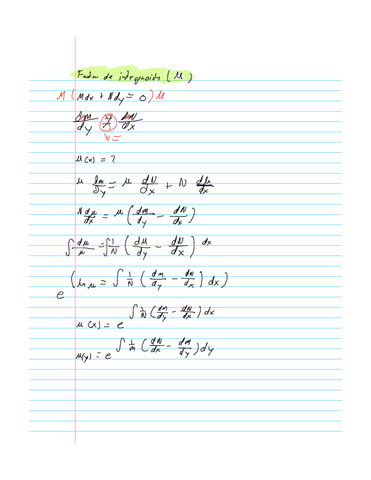 Factor de integración (μ)
μ (Mdx + Ndy = 0) μ
dm/dy ≠ dN/dx
v =
μ(x) = ?
μ dm/dy = μ dN/dx + N dμ/dx
N dμ/dx = μ (dm/dy - dN/dx)
∫ dμ/μ = ∫ 1/N (dM/dy - dN/dx) dx
e^(ln μ = ∫ 1/N (dm/dy - dN/dx) dx)
μ(x) = e^∫ 1/N (dm/dy - dN/dx) dx
μ(y) = e^∫ 1/m (dN/dx - dm/dy) dy